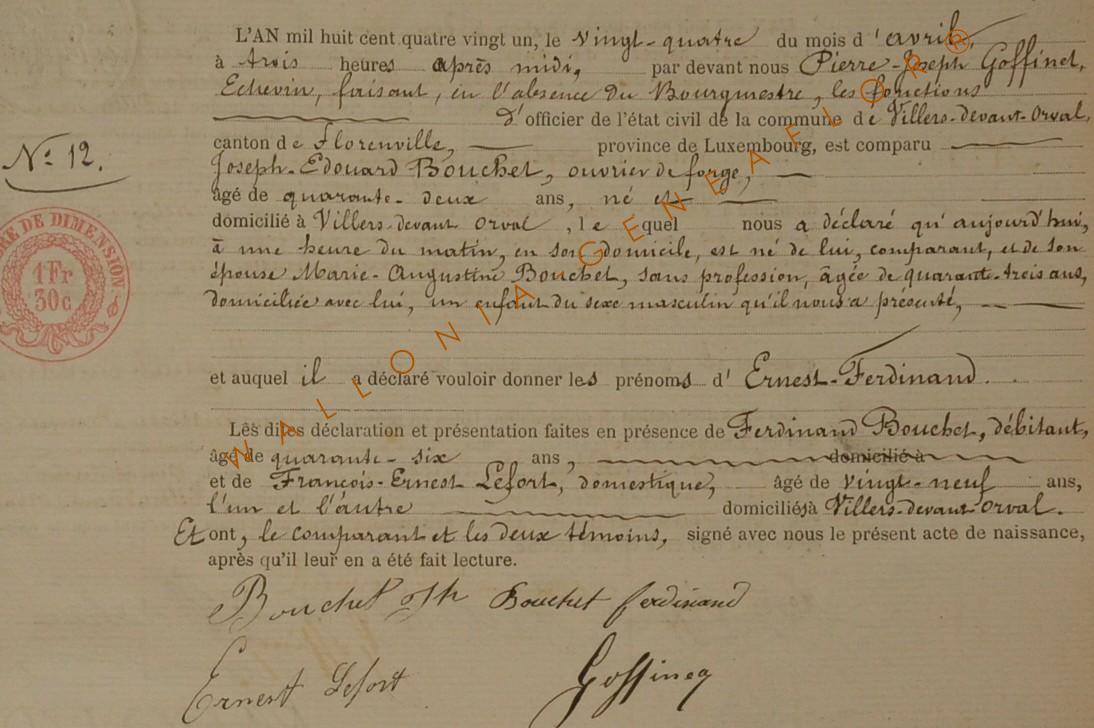 L'AN mil huit cent quatre vingt un, le vingt-quatre du mois d'avril
à trois heures après midi, par devant nous Pierre-Joseph Goffinet,
Echevin, faisant, en l'absence du Bourgmestre, les fonctions
d'officier de l'état civil de la commune de Villers-devant-Orval,
canton de Florenville, province de Luxembourg, est comparu
N° 12.
Joseph-Edouard Bouchet, ouvrier de forge,
âgé de quarante-deux ans, né et
domicilié à Villers-devant Orval, lequel nous a déclaré qu'aujourd'hui,
à une heure du matin, en son domicile, est né de lui, comparant, et de son
épouse Marie-Augustine Bouchet, sans profession, âgée de quarant-trois ans,
domiciliée avec lui, un enfant du sexe masculin qu'il nous a présenté,
RE DE DIMENSION
1 Fr
30c
et auquel il a déclaré vouloir donner les prénoms d'Ernest-Ferdinand.
Lesdites déclaration et présentation faites en présence de Ferdinand Bouchet, débitant,
âgé de quarante-six ans, domicilié à
et de François-Ernest Lefort, domestique, âgé de vingt-neuf ans,
l'un et l'autre domiciliés à Villers-devant-Orval.
Et ont, le comparant et les deux témoins, signé avec nous le présent acte de naissance,
après qu'il leur en a été fait lecture.
Bouchet Bouchet ferdinand
Ernest Lefort Goffinet
WALLONIA GENEAFLOR®